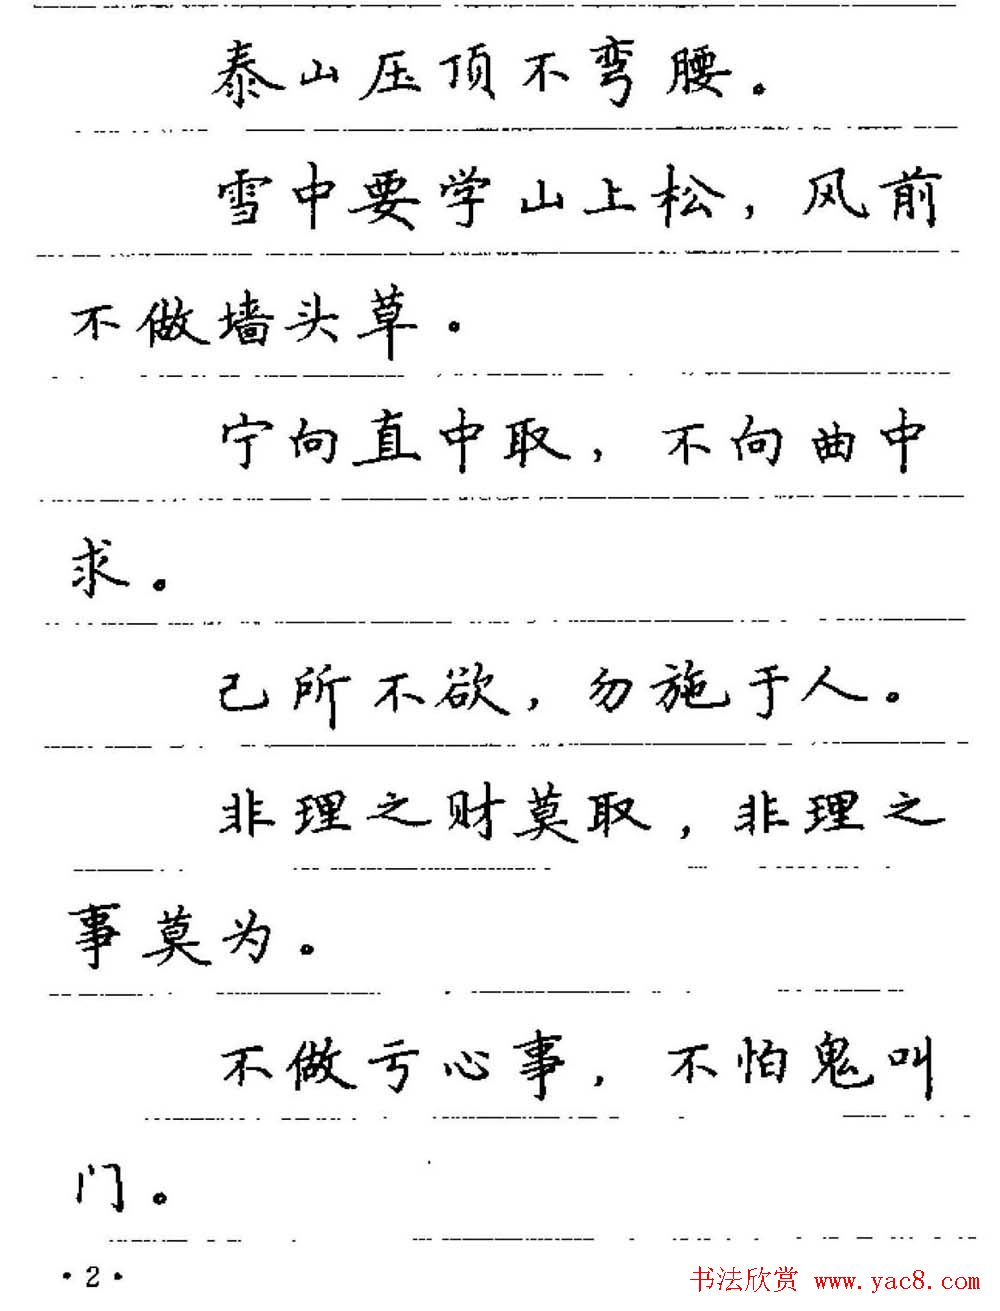 泰山压顶不弯腰。
雪中要学山上松，风前
不做墙头草。
宁向直中取，不向曲中
求。
己所不欲，勿施于人。
非理之财莫取，非理之
事莫为。
不做亏心事，不怕鬼叫
门。
·2·
书法欣赏 www.yac8.com